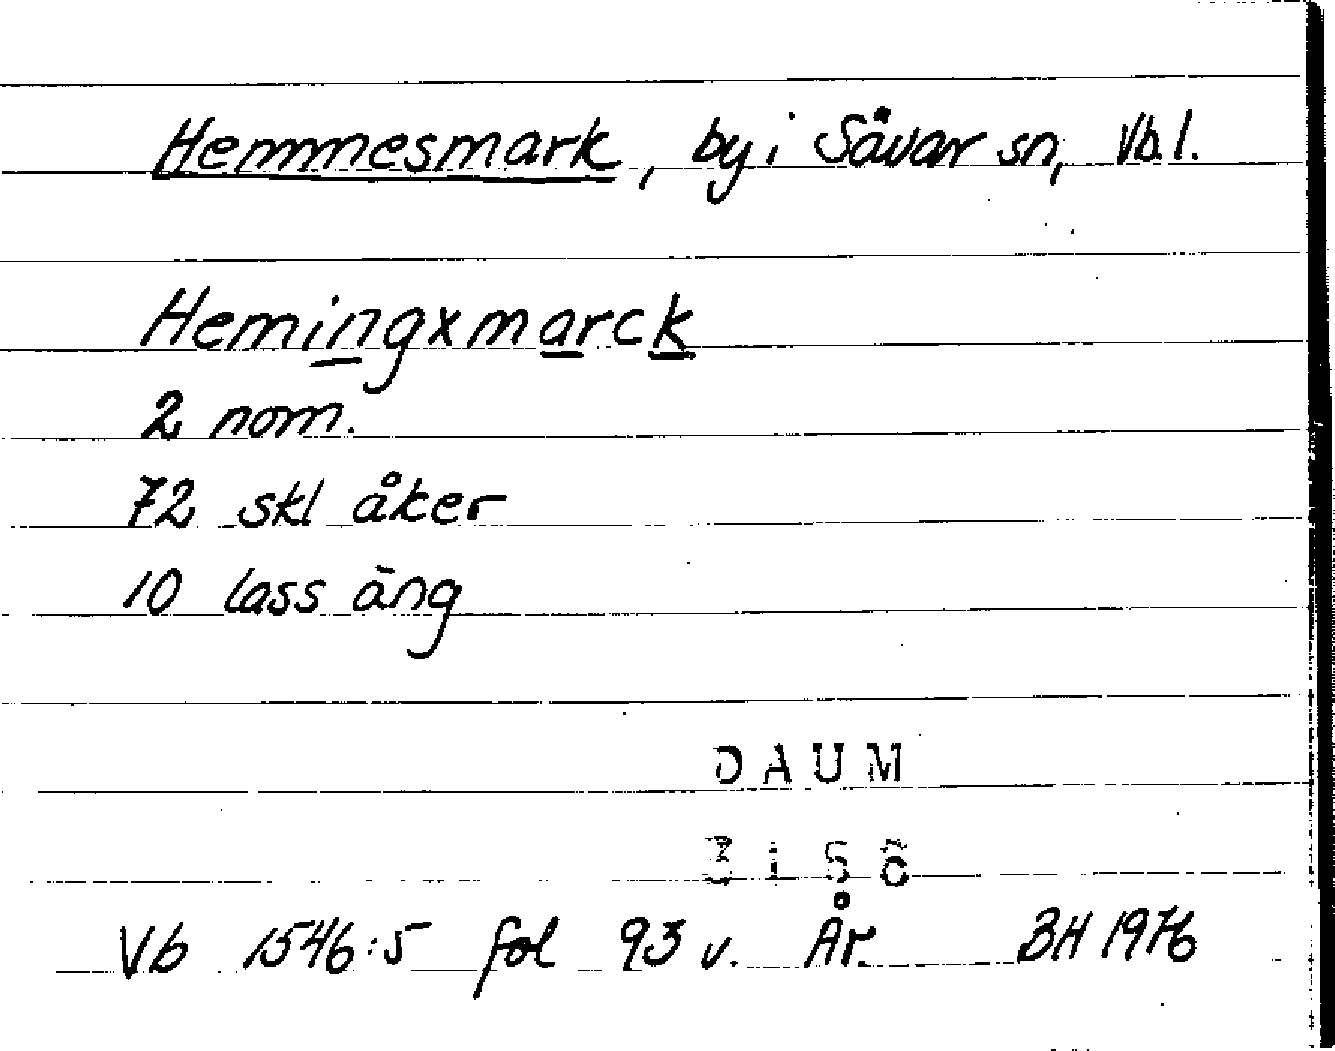 Hemmesmark, by i Sävar sn, Vb.l.
Hemingxmarck
2 nom.
72 skl åker
10 lass äng
DAUM
3156
Vb 1546:5 fol 93 v. År. BH 1976